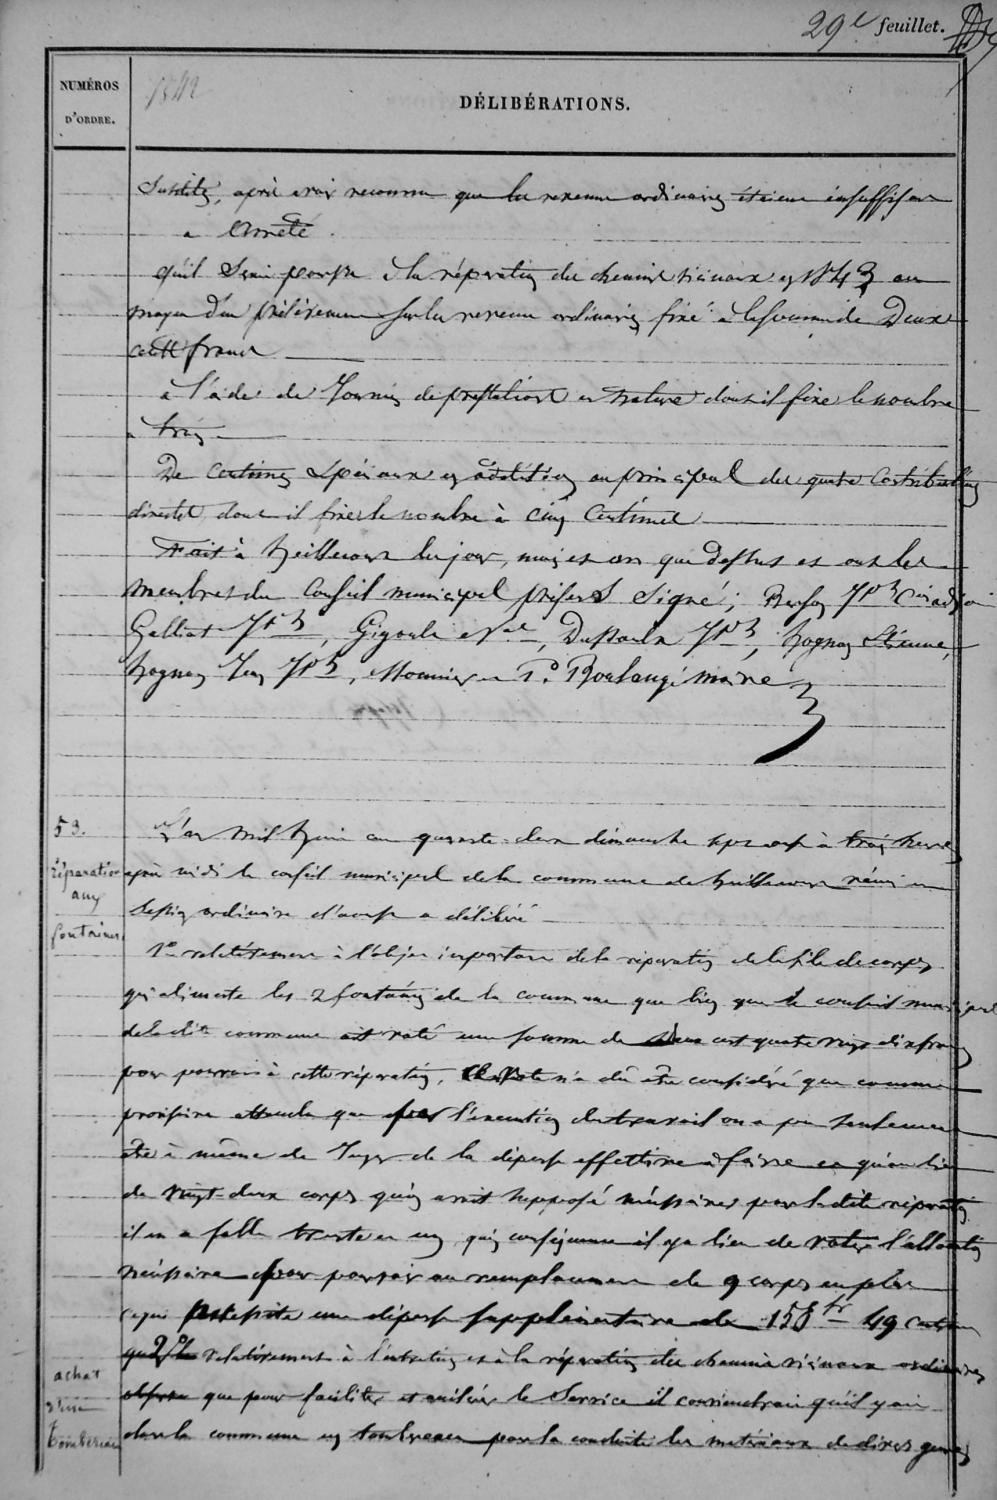 29e feuillet.
NUMÉROS
D'ORDRE.
1842
DÉLIBÉRATIONS.
Susdits, après avoir reconnu que les revenus ordinaires étaient insuffisans
a arrêté.
qu'il serait pourvu à la réparation des chemins vicinaux en 1843 au
moyen d'un prélèvement sur les revenus ordinaires fixé à la somme de Deux
cent francs
à l'aide de Journées de prestations en nature dont il fixe le nombre
à trois
De Centimes Spéciaux en addition au principal des quatre Contributions
directes dont il fixe le nombre à cinq Centimes
Fait à heillecourt les jour, mois et an que dessus et ont les
membres du Conseil municipal présens Signé;
Galliat Jph, Gigoule, Jph, hognon Etienne,
hognon Jean Jph, Mounier P. Boulangé maire
53.
réparation
aux
fontaines
L'an Mil huit cent quarante deux dimanche sept août à trois heures
après midi le conseil municipal de la commune de heillecourt réuni en
Session ordinaire d'août a délibéré
1o relativement à l'objet important de la réparation de la file de corps
qui alimente les 2 fontaines de la commune que bien que le conseil municipal
de la dite commune ait voté une somme de Deux cent quatre vingt dix francs
pour pourvoir à cette réparation, n'a dû être considéré que comme
provisoire attendu que l'exécution du travail on a pu seulement
être à même de Juger de la dépense effective à faire et qu'au lieu
de vingt-deux corps qu'on avait supposé nécessaires pour la dite réparation
il en a fallu trente et un, qu'en conséquence il y a lieu de voter l'allocation
nécessaire pour pourvoir au remplacement de 9 corps en plus
ce qui nécessite une dépense supplémentaire de 158 fr 49 Centimes
achat
d'un
tombereau
que 2o relativement à l'entretien et à la réparation des chemins vicinaux ordinaires
que pour faciliter et activer le Service il conviendrait qu'il y ait
dans la commune un tombereau pour la conduite des matériaux de divers genres